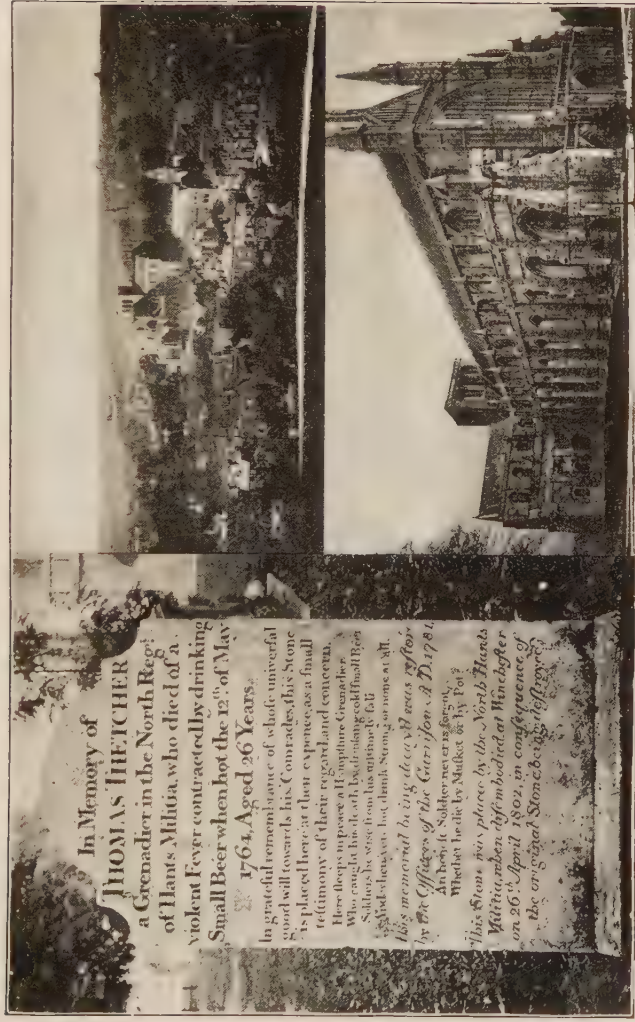 In Memory of
THOMAS THETCHER
a Grenadier in the North Regt.
of Hants Militia, who died of a
violent Fever contracted by drinking
Small Beer when hot the 12th. of May
1764, Aged 26 Years.
In grateful remembrance of whose universal
good will towards his Comrades, this Stone
is placed here at their expence, as a small
testimony of their regard and concern.
Here sleeps in peace a Hampshire Grenadier,
Who caught his death by drinking cold small Beer
Soldiers be wise from his untimely fall
And when yere hot drink Strong or none at all.
This memorial being decay'd was restor'd
by the Officers of the Garrison A.D. 1781.
An honest Soldier never is forgot,
Whether he die by Musket or by Pot.
This Stone was placed by the North Hants
Militia, when disembodied at Winchester
on 26th April 1802, in consequence of
the original Stone being destroyed